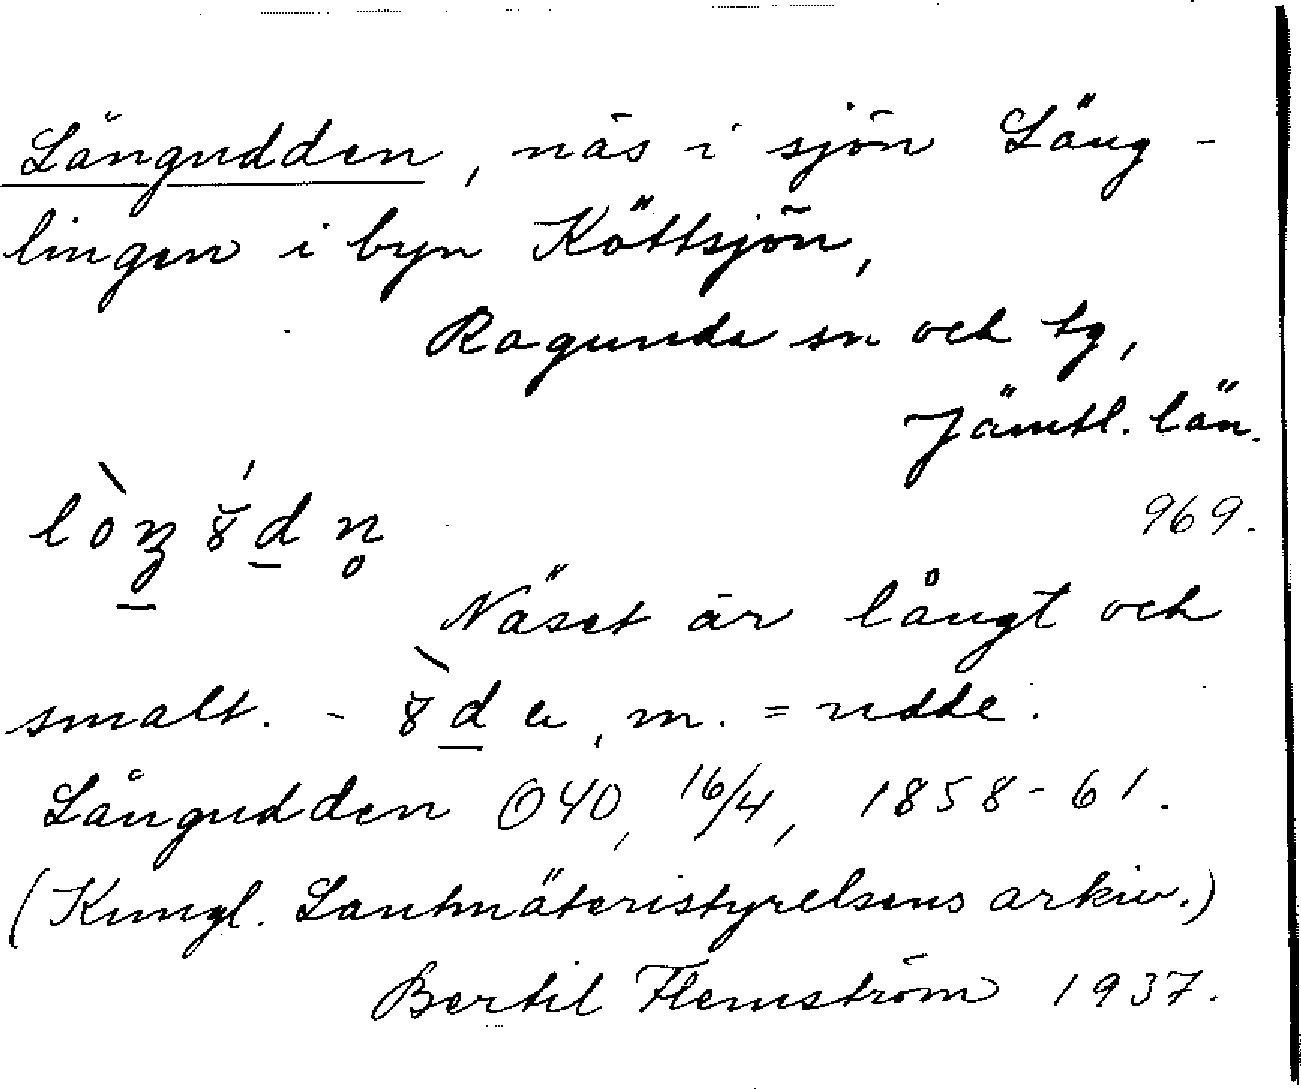 Långudden, näs i sjön Läng-
lingen i byn Köttsjön,
Ragunda sn och tg,
Jämtl. län.
969.
Näset är långt och
smalt. - m. = udde.
Långudden O40, 16/4, 1858-61.
(Kungl. Lantmäteristyrelsens arkiv.)
Bertil Flemström 1937.